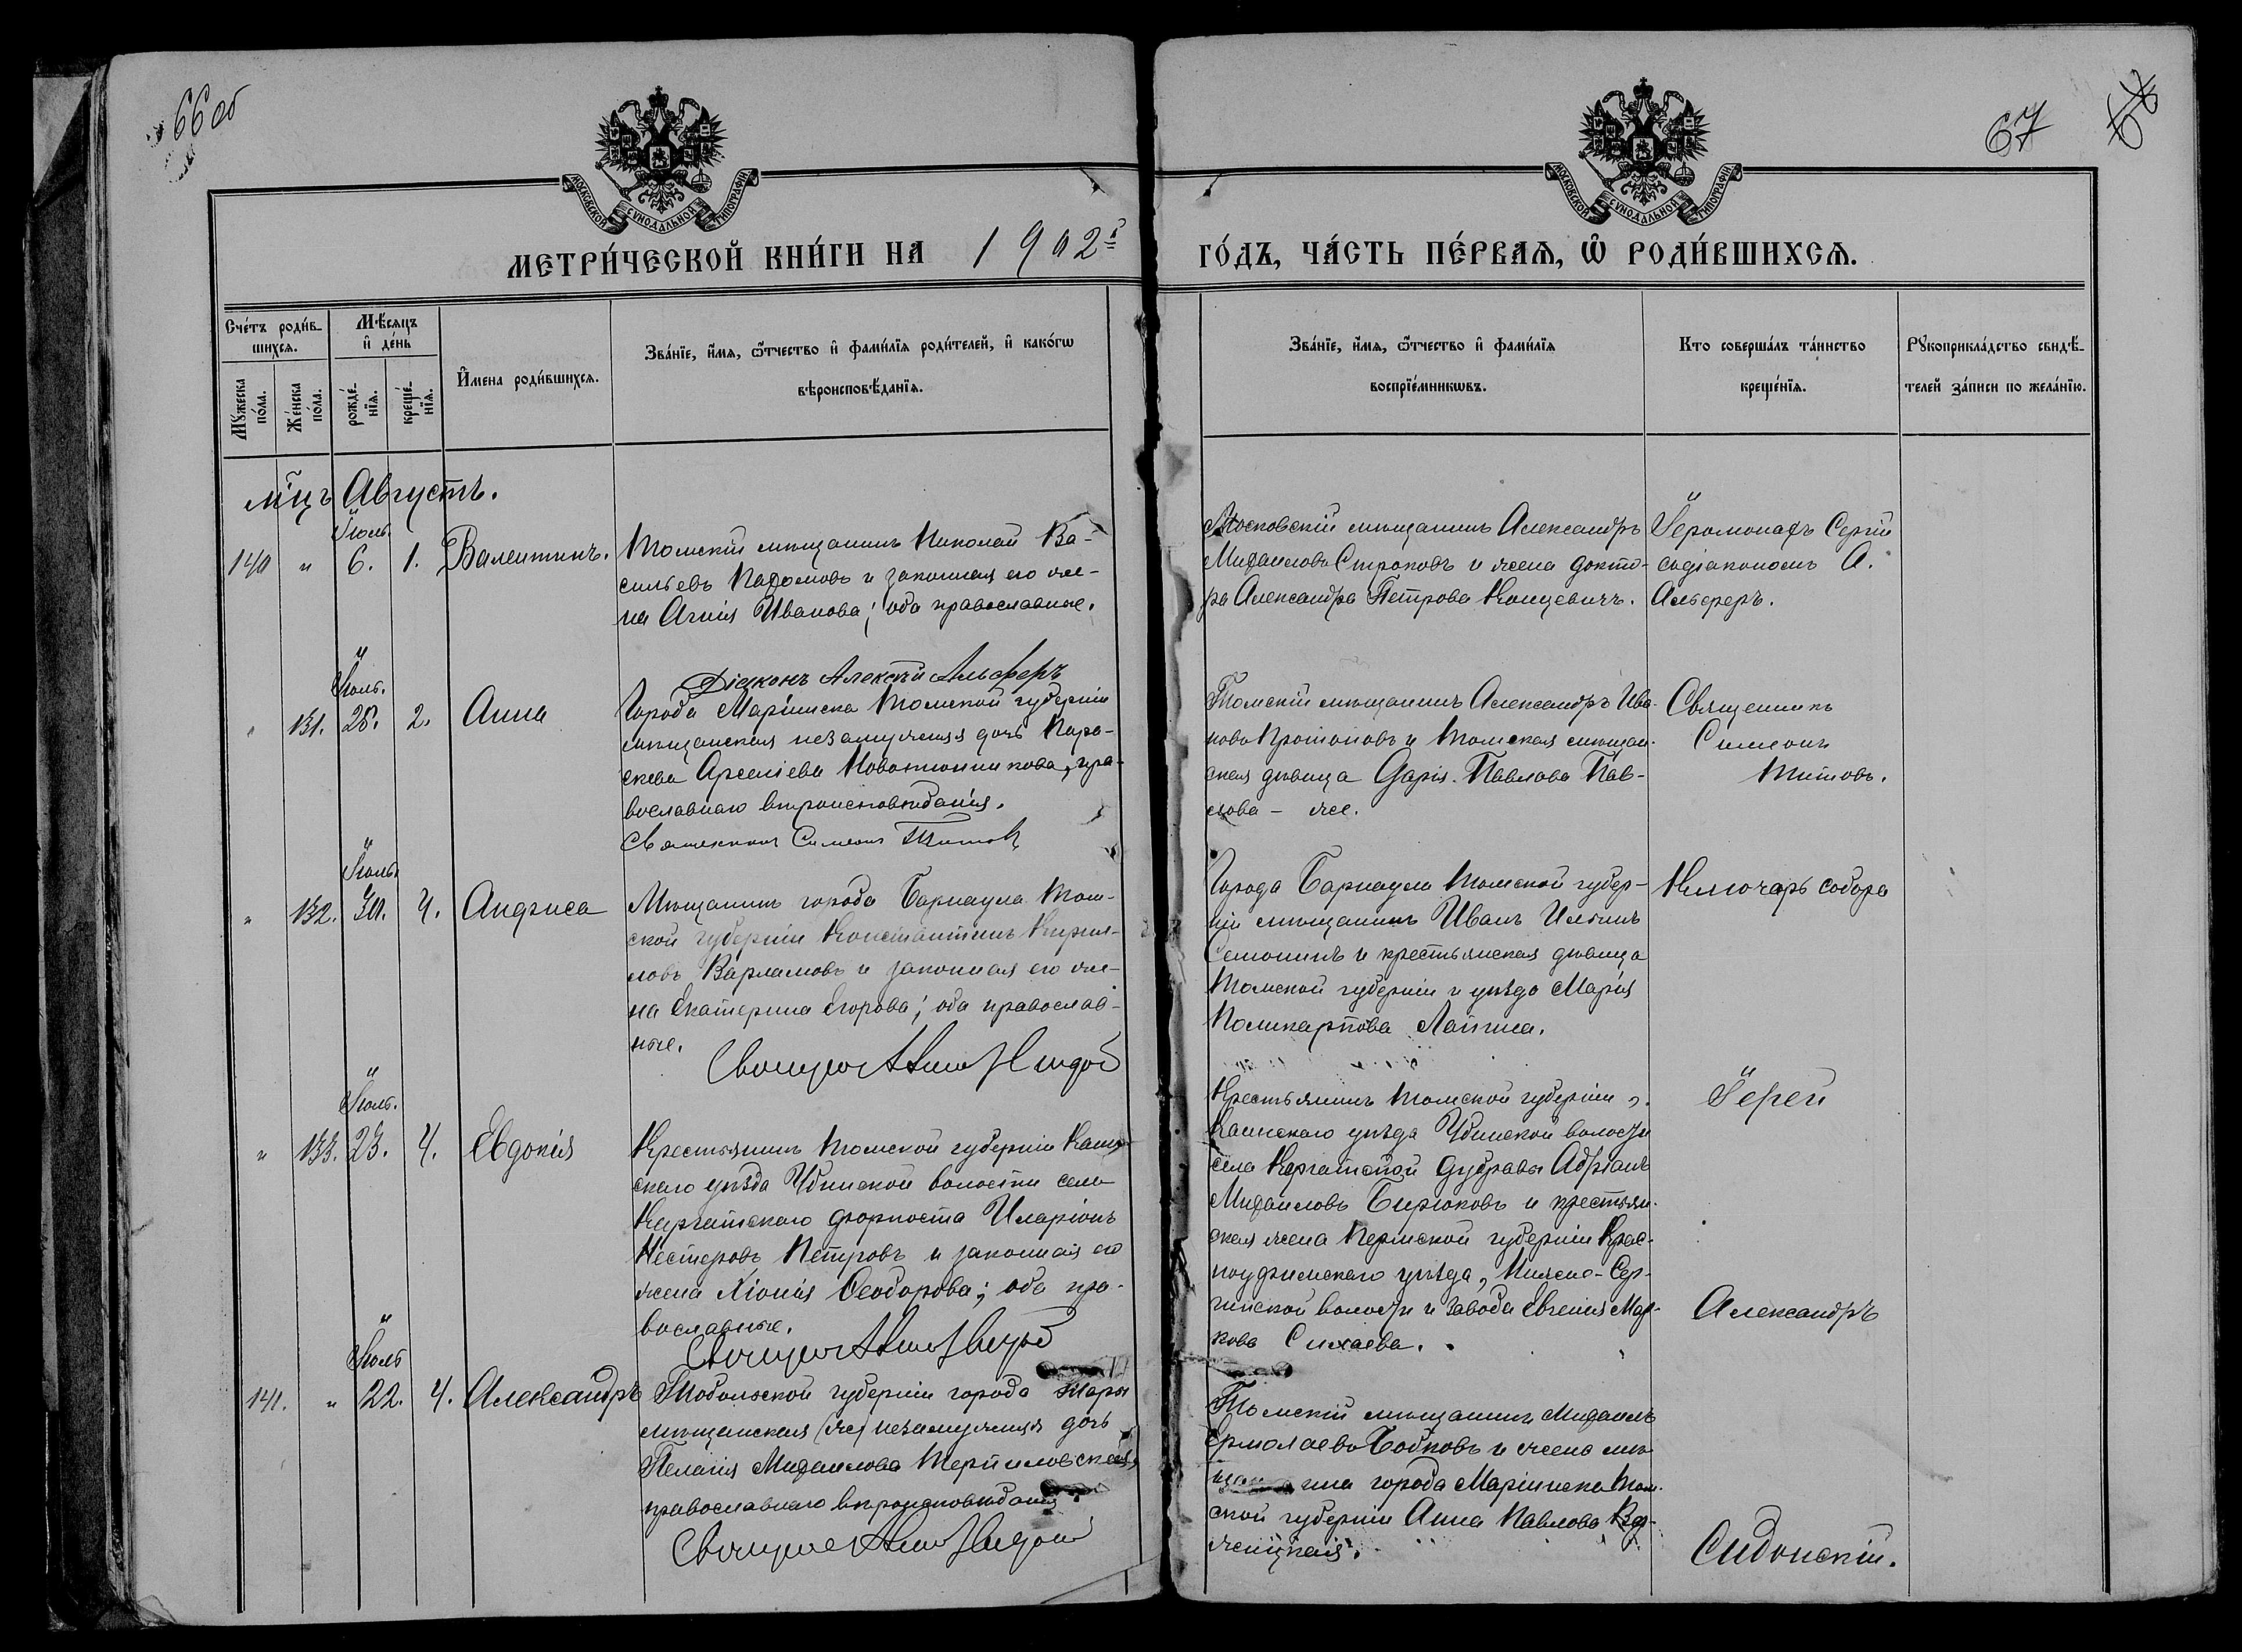 66 об
67
МОСКОВСКОЙ СѴНОДАЛЬНОЙ ТИПОГРАФІИ
МОСКОВСКОЙ СѴНОДАЛЬНОЙ ТИПОГРАФІИ
МЕТРИ́ЧЕСКОЙ КНИ́ГИ НА 1902й
ГО́ДЪ, ЧА́СТЬ ПЕ́РВАѦ, Ѿ РОДИ́ВШИХСѦ.
Сче́тъ роди́в-
шихсѧ.
Мꙋ́жеска по́ла.
Же́нска по́ла.
Мѣ́сѧцъ
и҆ де́нь
рожде́-нїѧ.
креще́-нїѧ.
И҆мена роди́вшихсѧ.
Зва́нїе, и҆́мѧ, ѻ҆́тчество и҆ фами́лїѧ роди́телей, и҆ како́гѡ
вѣроисповѣ́данїѧ.
Зва́нїе, и҆́мѧ, ѻ҆́тчество и҆ фами́лїѧ
воспрїе́мникѡвъ.
Кто соверша́лъ та́инство
креще́нїѧ.
Рꙋкоприкла́дство свидѣ́-
телей за́писи по жела́нїю.
м̃цъ Августъ.
Іюль.
140 " 6. 1. Валентинъ.
Томскій мѣщанинъ Николай Ва-
сильевъ Пахомовъ и законная его же-
на Агнія Иванова; оба православные.
Діаконъ Алексѣй Альферъ
Московскій мѣщанинъ Александръ
Михаиловъ Строковъ и жена докто-
ра Александра Петрова Концевичъ.
Іеромонахъ Сергій
съ діакономъ А.
Альферъ.
Іюль.
" 131. 28. 2. Анна
Города Маріинска Томской губерніи
мѣщанская незамужняя дочь Пара-
скева Арсеніева Новокшонникова, пра-
вославнаго вѣроисповѣданія.
Священникъ Симеонъ Титовъ
Томскій мѣщанинъ Александръ Ива-
новъ Протоповъ и Томская мѣщан-
ская дѣвица Дарія Павлова Пав-
лова - же.
Священникъ
Симеонъ
Титовъ.
Іюль.
" 132. 30. 4. Анфиса
Мѣщанинъ города Барнаула Том-
ской губерніи Константинъ Кирил-
ловъ Варламовъ и законная его же-
на Екатерина Егорова; оба православ-
ные.
Города Барнаула Томской губер-
ніи мѣщанинъ Иванъ Ильинъ
Семонинъ и крестьянская дѣвица
Томской губерніи и уѣзда Марія
Поликарпова Лапина.
Ключарь собора
Іюль.
" 133. 23. 4. Евдокія
Крестьянинъ Томской губерніи Каин-
скаго уѣзда Убинской волости села
Каргатскаго форпоста Иларіонъ
Нестеровъ Петровъ и законная его
жена Хіонія Ѳеодорова; оба пра-
вославные.
Крестьянинъ Томской губерніи
Каинскаго уѣзда Убинской волости
села Каргатской Дубравы Адріанъ
Михаиловъ Бирюковъ и крестьян-
ская жена Пермской губерніи Крас-
ноуфимскаго уѣзда, Нижно-Сер-
гинской волости и завода Евгенія Мар-
кова Сихаева.
Іерей
Александръ
Іюль
141. " 22. 4. Александръ
Тобольской губерніи города Тары
мѣщанская (же) незамужняя дочь
Пелагія Михаилова Терпиловская,
православнаго вѣроисповѣданія.
Томскій мѣщанинъ Михаилъ
Ермолаевъ Бобковъ и жена мѣ-
щанина города Маріинска Том-
ской губерніи Анна Павлова
Сидонскій.